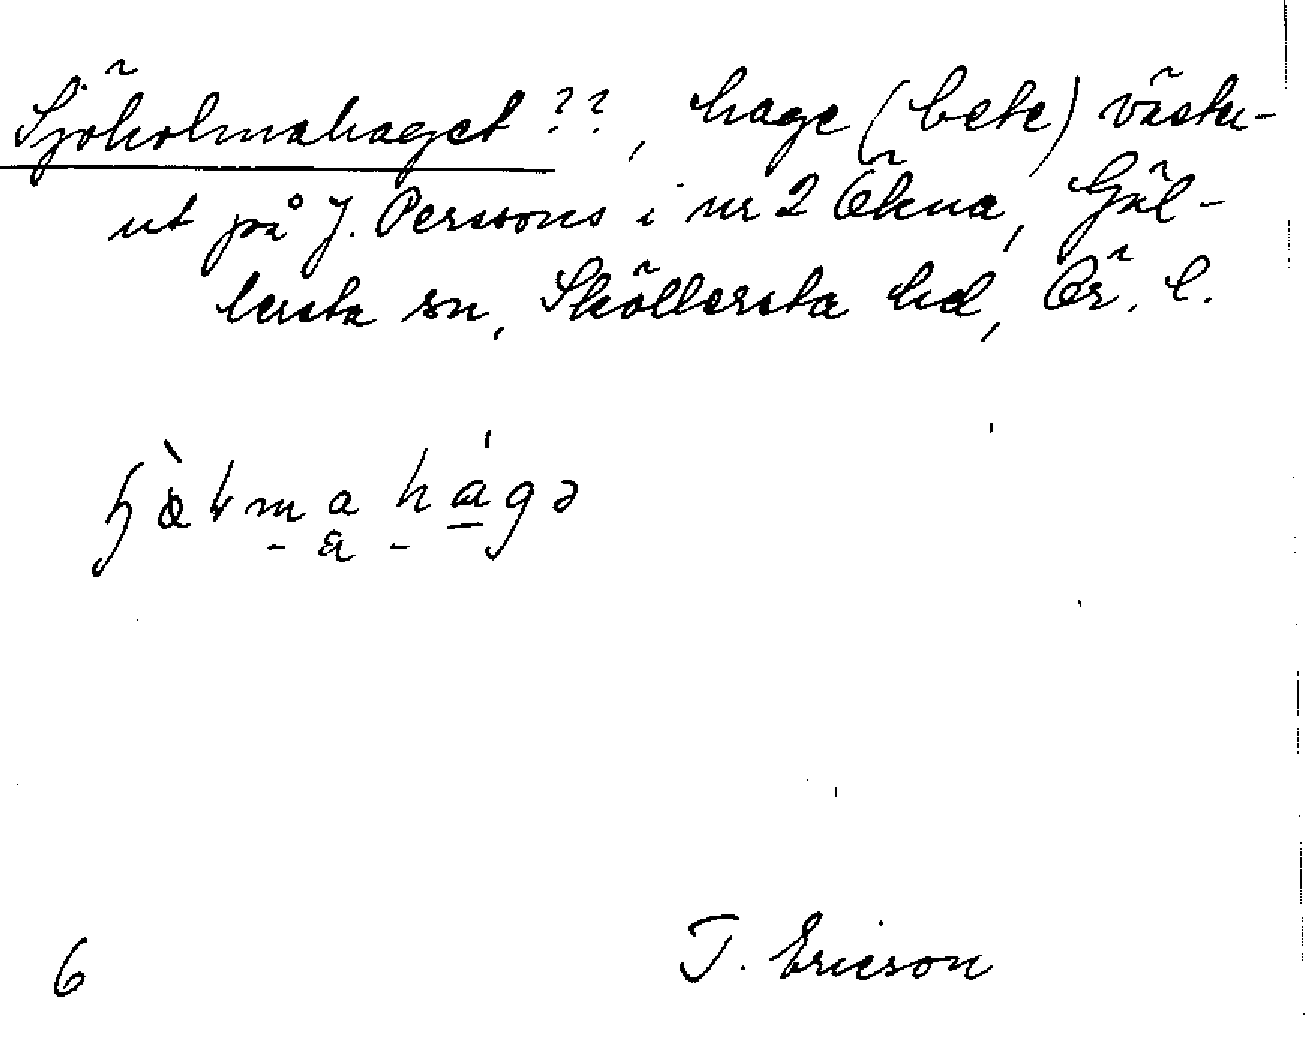 Sjöholmahaget ??, hage (bete) väster-
ut på J. Perssons i nr 2 Ökna, Gäl-
lersta sn, Sköllersta hd, Ör. l.
6
T. Ericson